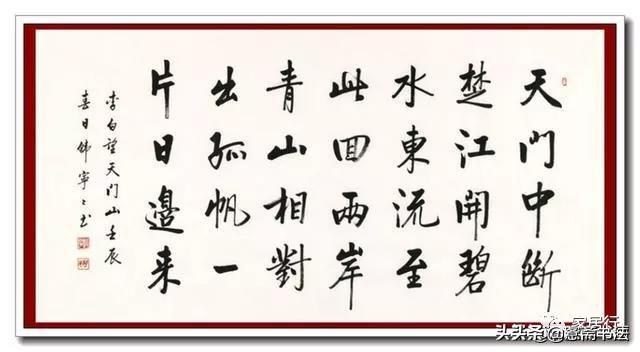 天門中斷
楚江開碧
水東流至
此回兩岸
青山相對
出孤帆一
片日邊来
李白望天門山壬辰
日寧〻书
家居行
头条 书法